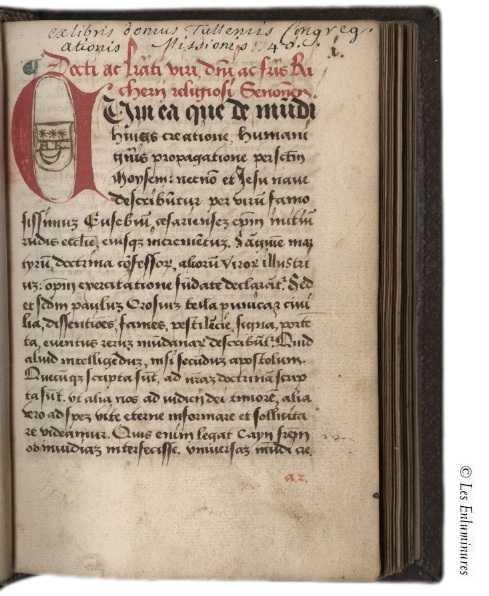 ex libris domus Tullensis Congreg
ationis Missionis 1740. C. i.
Docti ac Lr̃ati viri dñi ac fr̃is Ri
cherii religiosi Senoneñ.
Cum ea que de mũdi
huius creatione, humani
generis propagatione per sctm̃
Moysem: necnõ et Jesu nave
describũtur per virũ famo
sissimuz Eusebiũ, cesariensez ep̃m initiũ
rudis ecclie, eiusqz incrementuz. Sãguine mar
tyrũ, doctrina cõfessoꝝ, alioruz viroꝝ illustri
uz: opm̃ exercitatione fũdate declarãt.̃ Sed
et sc̃dm paulus Orosius bella punicaz civi
lia, dissentiões, fames, pestilẽcie, signa, portẽ
ta, eventus reruz mũdanaꝝ describũt. Quid
aliud intelligeduz, nisi secũduz apostolum.
Quecũqz scripta sũt, ad nr̃az doctrinã scrip
ta sũt. ut alia nos ad iudicii dei timorẽ, alia
vero ad spez vite eterne informare et sollicita
re videãmur. Quis enim legat Cayn frem̃
ob invidiaz interfecisse. universaz mũdi cre
a.2.
© Les Enluminures